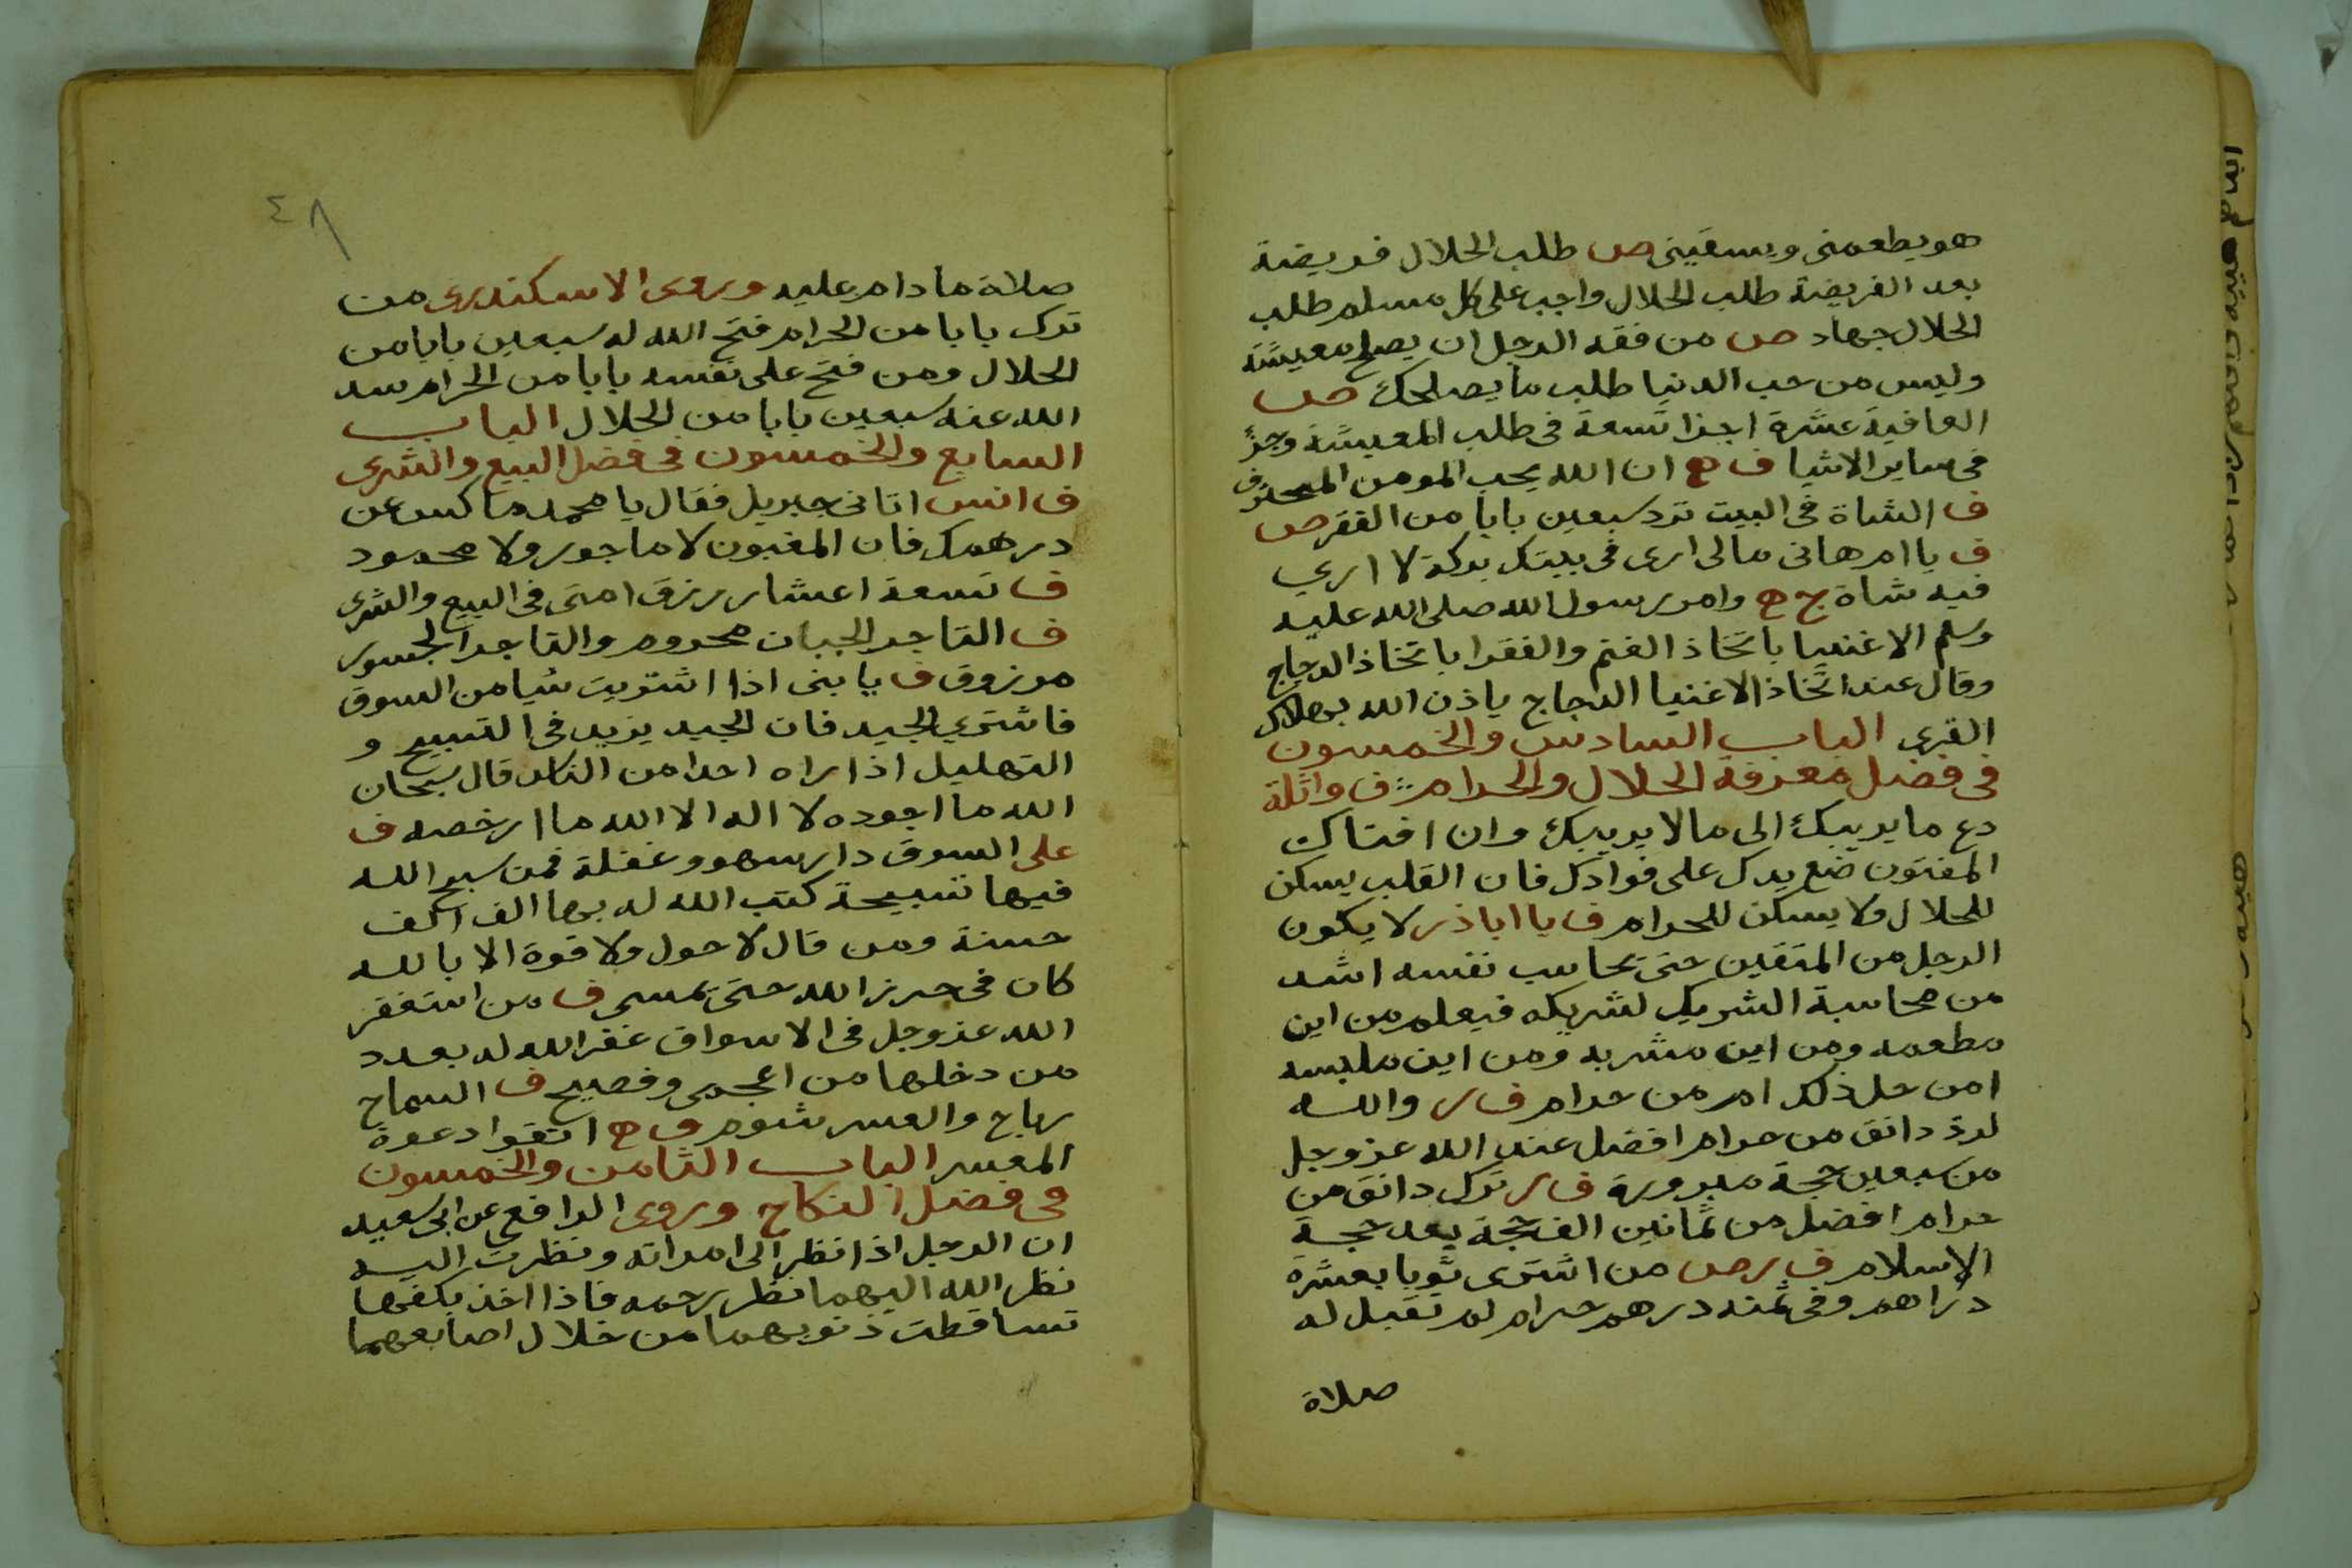 هو يطعمني ويسقيني ص طلب الحلال فريضة
بعد الفريضة طلب الحلال واجب على كل مسلم طلب
الحلال جهاد ص من فقه الرجل ان يصلح معيشته
وليس من حب الدنيا طلب ما يصلحك ص
العافية عشرة اجزا تسعة فى طلب المعيشة وجزؤ
فى ساير الاشيا ف ه ان الله يحب المومن المحترف
ف الشاة فى البيت ترد سبعين بابا من الفقر ص
ف يا ام هانى مالى ارى فى بيتك بركة لا ارى
فيه شاة ج ه وامر رسول الله صلى الله عليه
وسلم الاغنيا باتخاذ الغنم والفقرا باتخاذ الدجاج
وقال عند اتخاذ الاغنيا الدجاج ياذن الله بهلاك
القرى الباب السادس والخمسون
فى فضل معرفة الحلال والحرام ف واثلة
دع ما يريبك الى ما لا يريبك وان افتاك
المفتون ضع يدك على فوادك فان القلب يسكن
للحلال ولا يسكن للحرام ف يا اباذر لا يكون
الرجل من المتقين حتى يحاسب نفسه اشد
من محاسبة الشريك لشريكه فيعلم من اين
مطعمه ومن اين مشربه ومن اين ملبسه
امن حل ذلك ام من حرام ف ر والله
لرد دانق من حرام افضل عند الله عز وجل
من سبعين حجة مبرورة ف ر ترك دانق من
حرام افضل من ثمانين الف حجة بعد حجة
الاسلام ف ر ص من اشترى ثوبا بعشرة
دراهم وفى ثمنه درهم حرام لم تقبل له
صلاة
٤٨
صلاة ما دام عليه وروى الاسكندرى من
ترك بابا من الحرام فتح الله له سبعين بابا من
الحلال ومن فتح على نفسه بابا من الحرام سد
الله عنه سبعين بابا من الحلال الباب
السابع والخمسون فى فضل البيع والشرى
ف انس اتانى جبريل فقال يا محمد ماكس عن
درهمك فان المغبون لا ماجور ولا محمود
ف تسعة اعشار رزق امتى فى البيع والشرى
ف التاجر الجبان محروم والتاجر الجسور
مرزوق ف يا بنى اذا اشتريت شيا من السوق
فاشتري الجيد فان الجيد يزيد فى التسبيح و
التهليل اذا راه احدا من الناس قال سبحان
الله ما اجوده لا اله الا الله ما ارخصه ف
على السوق دار سهو وغفلة فمن سبح الله
فيها تسبيحة كتب الله له بها الف الف
حسنة ومن قال لا حول ولا قوة الا بالله
كان فى حرز الله حتى يمسى ف من استغفر
الله عز وجل فى الاسواق غفر الله له بعدد
من دخلها من اعجمى وفصيح ف السماح
رباح والعسر شوم ف ه اتقوا دعوة
المعسر الباب الثامن والخمسون
فى فضل النكاح وروى الرافع عن ابى سعيد
ان الرجل اذا نظر الى امراته ونظرت اليه
نظر الله اليهما نظر رحمه فاذا اخذ بكفها
تساقطت ذنوبهما من خلال اصابعهما